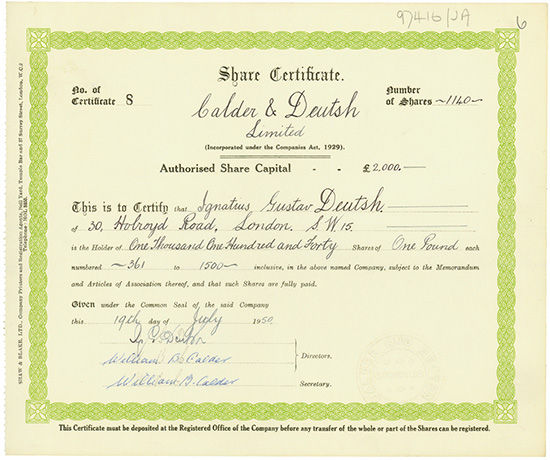 97416/JA
6
Share Certificate.
No. of
Certificate 8
Number
of Shares ~1140~
Calder & Deutsh
Limited
(Incorporated under the Companies Act, 1929).
Authorised Share Capital - - £2,000.—
This is to Certify that Ignatius Gustav Deutsh.
of 30, Holroyd Road, London. S.W.15.
is the Holder of One Thousand One Hundred and Forty Shares of One Pound each
numbered ~361 to 1500~ inclusive, in the above named Company, subject to the Memorandum
and Articles of Association thereof, and that such Shares are fully paid.
Given under the Common Seal of the said Company
this 19th day of July 1950
William B. Calder
Directors.
William B. Calder
Secretary.
This Certificate must be deposited at the Registered Office of the Company before any transfer of the whole or part of the Shares can be registered.
SHAW & BLAKE, LTD., Company Printers and Registration Agents, Bell Yard, Temple Bar and 27 Surrey Street, London, W.C.2